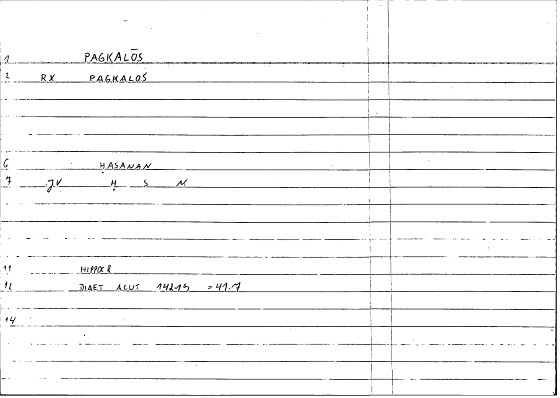 1 PAGKALŌS
2 RX PAGKALOS
6 ḤASANAN
7 JV Ḥ S N
11 HIPPOCR
12 DIAET ACUT 142.15 = 41.7
14